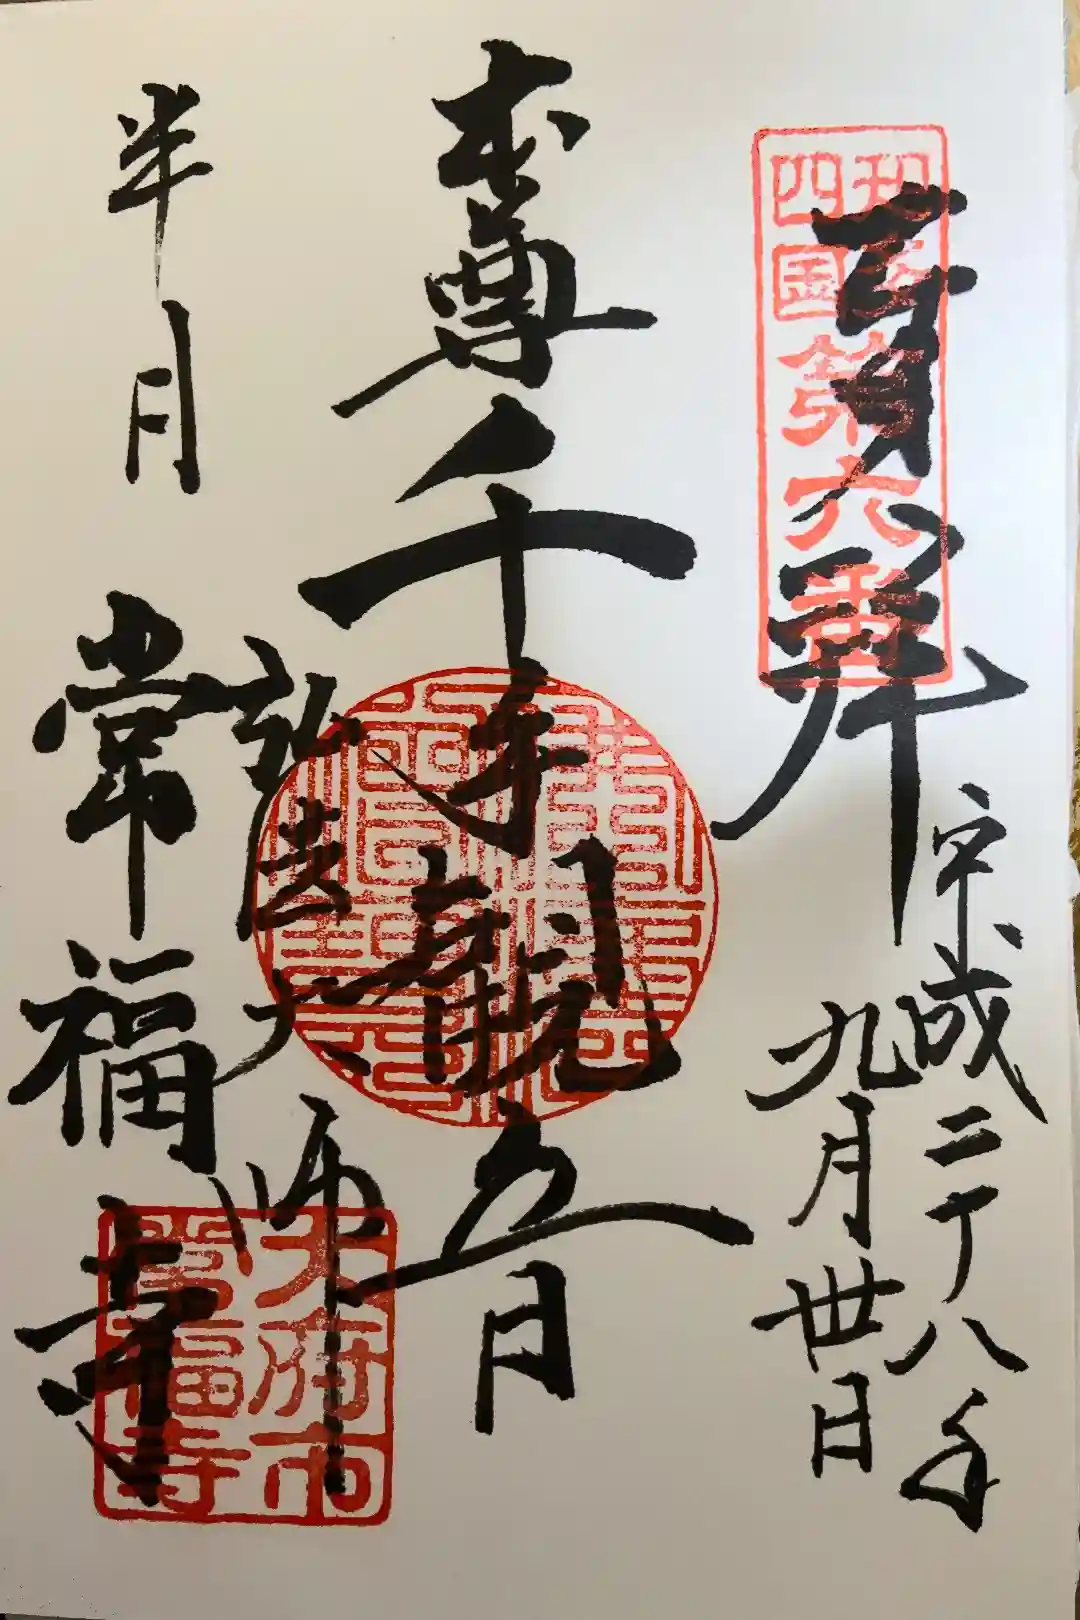 奉拝
平成二十八年
九月卅日
本尊千手観音
弘法大師
半月
常福寺
四国第六番
大府市
常福寺